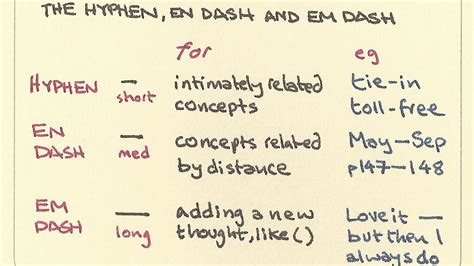 THE HYPHEN, EN DASH AND EM DASH
for eg
HYPHEN — short intimately related concepts tie-in toll-free
EN DASH — med concepts related by distance May—Sep p147—148
EM DASH — long adding a new thought, like ( ) Love it — but then I always do